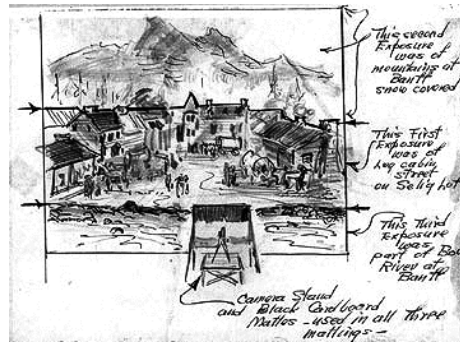 This second
Exposure
was of
mountains at
Banff
snow covered
This First
Exposure
was of
Log cabin
street
on Selig Lot
This Third
Exposure
was
part of Bow
River at
Banff
Camera Stand
and Black Cardboard
Mattes - used in all Three
mattings -